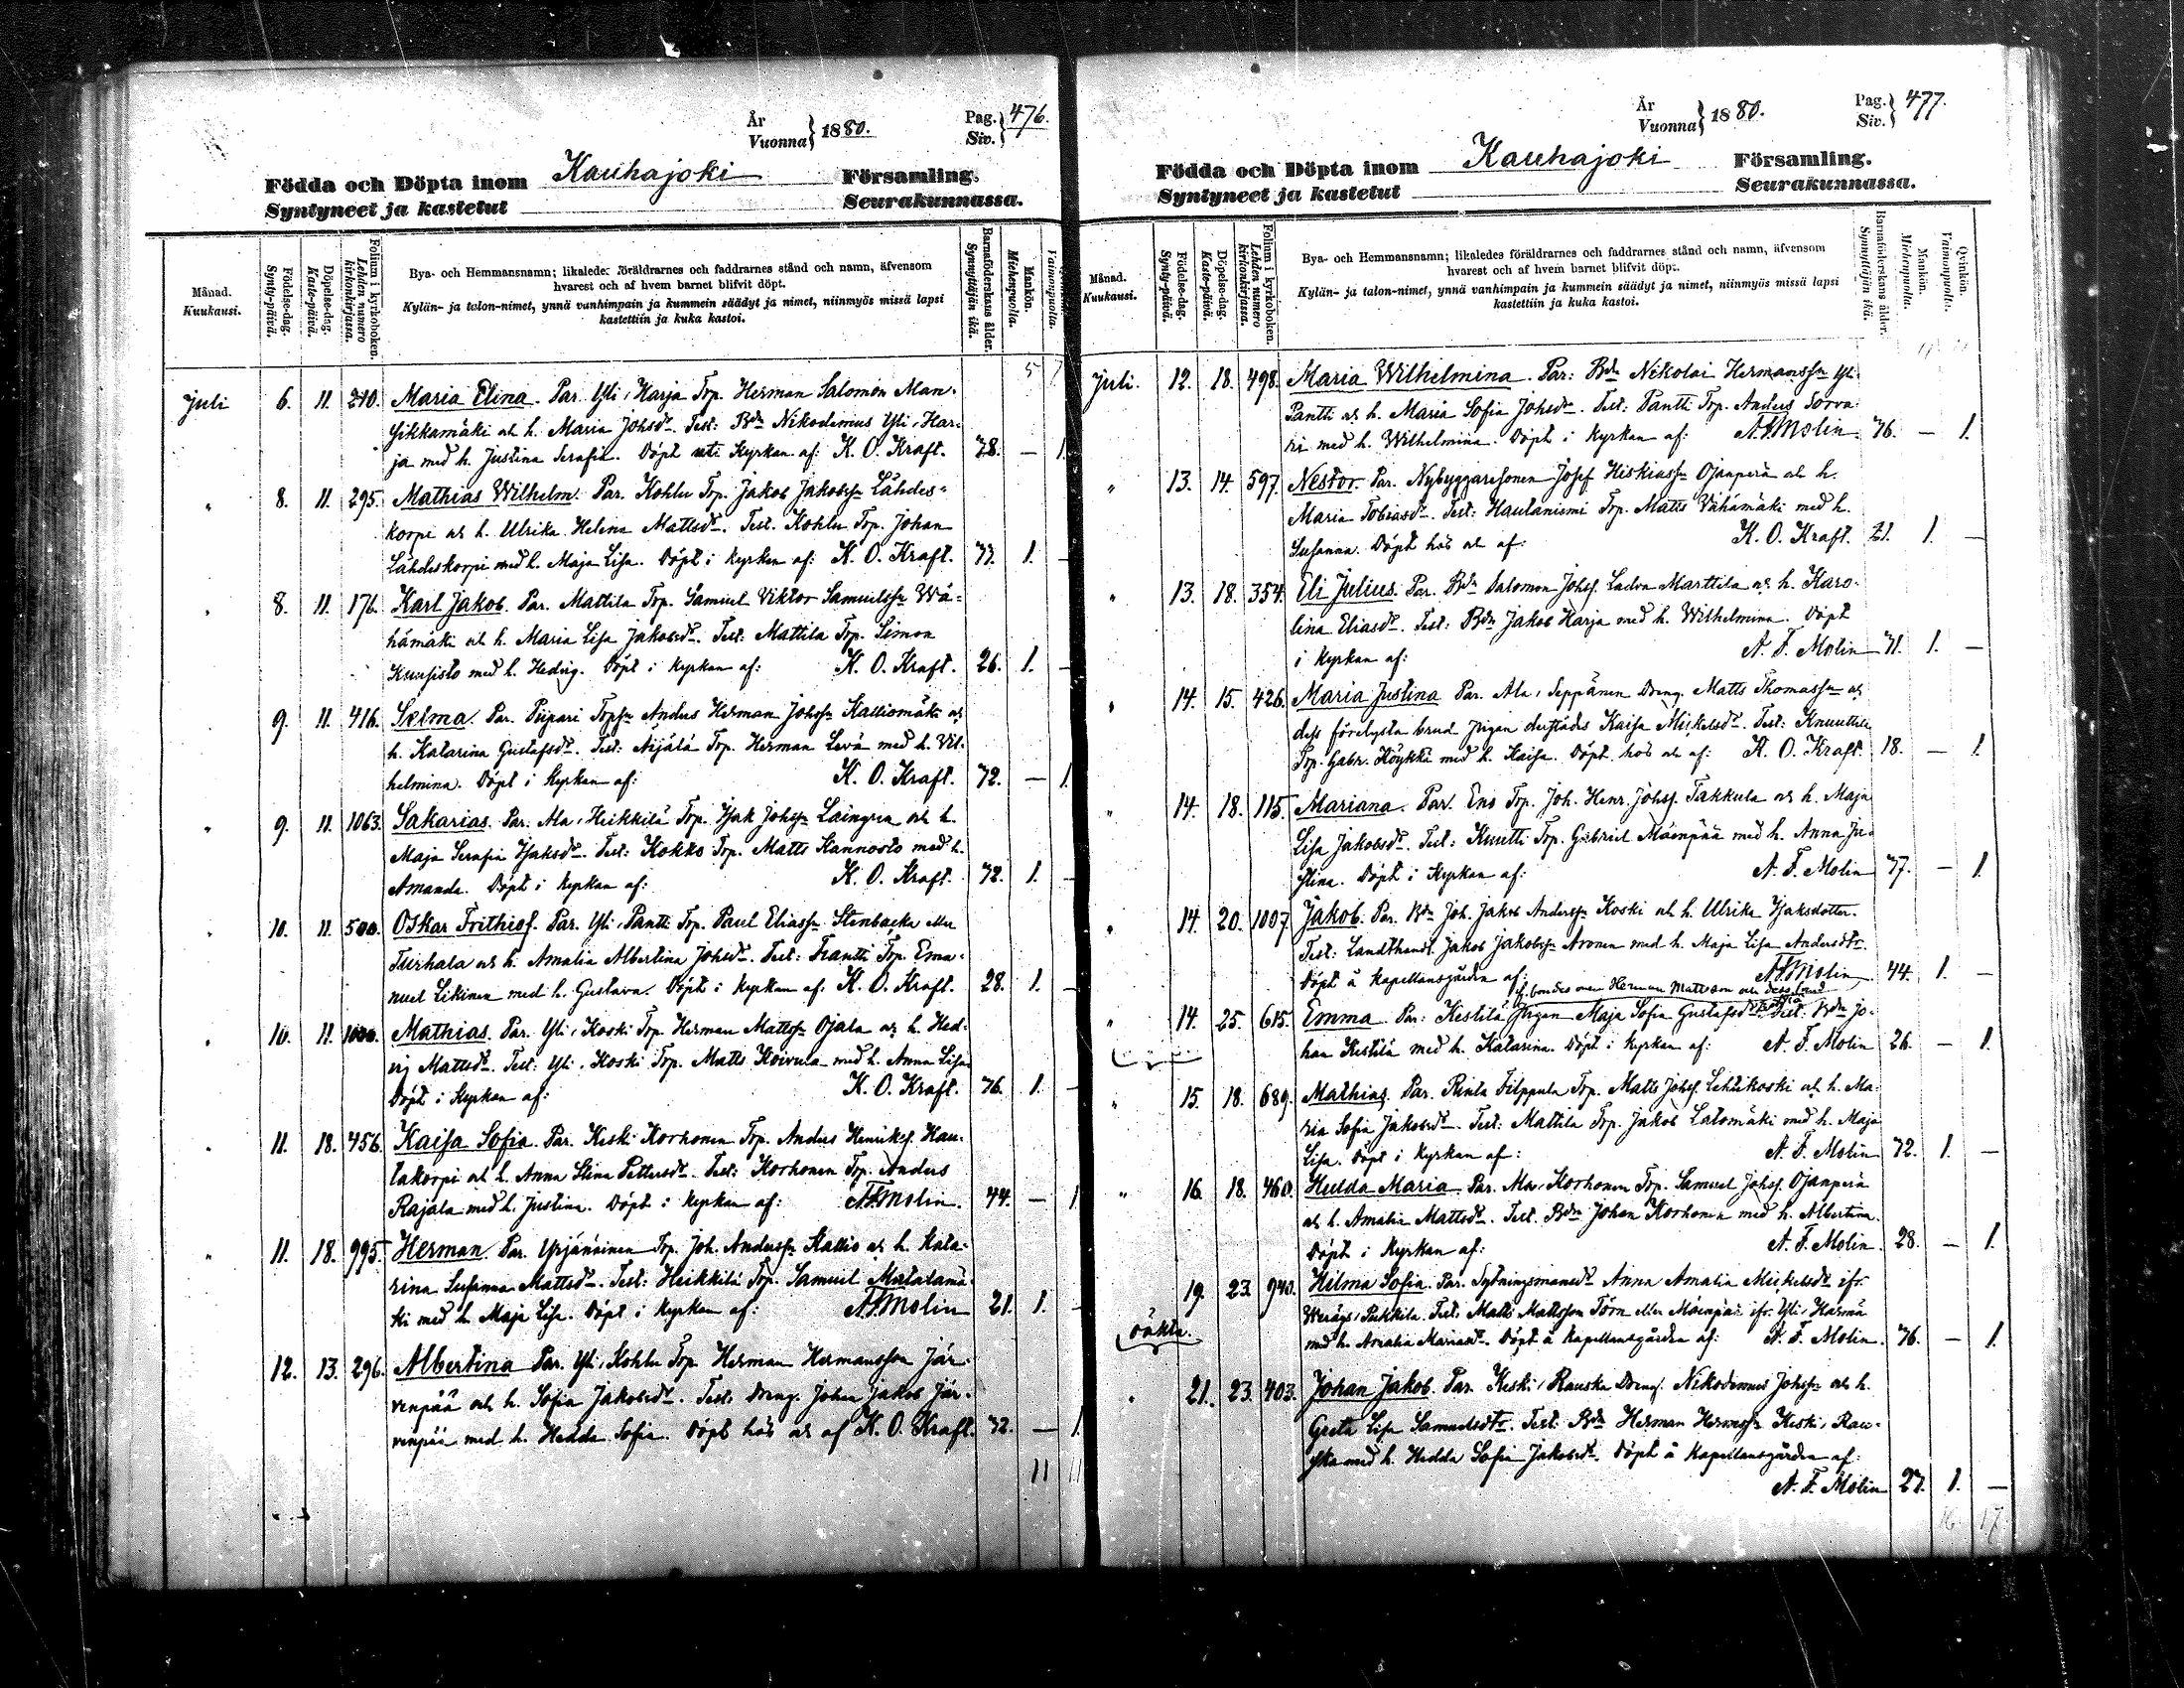 År
Vuonna } 1880.
Pag.
Siv. } 476.
Födda och Döpta inom Kauhajoki Församling.
Syntyneet ja kastetut Seurakunnassa.
Månad.
Kuukausi.
Födelse-dag.
Synty-päivä.
Döpelse-dag.
Kaste-päivä.
Folium i kyrkoboken.
Lehden numero kirkonkirjassa.
Bya- och Hemmansnamn; likaledes föräldrarnes och faddrarnes stånd och namn, äfvensom
hvarest och af hvem barnet blifvit döpt.
Kylän- ja talon-nimet, ynnä vanhimpain ja kummein säädyt ja nimet, niinmyös missä lapsi
kastettiin ja kuka kastoi.
Barnaföderskans ålder.
Synnyttäjän ikä.
Mankön.
Miehenpuolta.
Vaimonpuolta.
5 7
Juli 6. 11. 210. Maria Elina. Par. Yli, Harja Trp. Herman Salomon Man-
gikkamäki och h. Maria Johsdr. Test: Bdn Nikodemus Yli, Har-
ja med h. Justina Serafia. Döpt uti Kyrkan af: K. O. Kraft. 28. — 1.
" 8. 11. 295. Mathias Wilhelm. Par. Kohlu Trp. Jakob Jakobssn Lähdes-
korpi och h. Ulrika Helena Mattsdr. Test. Kohlu Trp. Johan
Lähdeskorpi med h. Maja Lisa. Döpt i Kyrkan af: K. O. Kraft. 77. 1. —
" 8. 11. 176. Karl Jakob. Par. Mattila Trp. Samuel Viktor Samuelssn Wä-
hämäki och h. Maria Lisa Jakobsdr. Test: Mattila Trp. Simon
Kuusisto med h. Hedvig. Döpt i Kyrkan af: K. O. Kraft. 26. 1. —
9. 11. 416. Selma. Par. Piipari Trpsn Anders Herman Johssn Kalliomäki och
h. Katarina Gustafsdr. Test: Äijälä Trp. Herman Levä med h. Vil-
helmina. Döpt i Kyrkan af: K. O. Kraft. 72. — 1.
" 9. 11. 1063. Sakarias. Par. Ala, Heikkilä Trp. Isak Johssn Laingren och h.
Maja Serafia Isaksdr. Test: Kokko Trp. Matts Kannosto med h.
Amanda. Döpt i Kyrkan af: K. O. Kraft. 72. 1. —
" 10. 11. 500. Oskar Frithiof. Par. Yli, Pantti Trp. Paul Eliassn Stenbacka eller
Turhala och h. Amalia Albertina Johsdr. Test: Trantti Trp. Ema-
nuel Likinen med h. Gustava. Döpt i Kyrkan af: K. O. Kraft. 28. 1. —
" 10. 11. 1000. Mathias. Par. Yli, Koski Trp. Herman Mattssn Ojala och h. Hed-
vig Mattsdr. Test: Yli, Koski Trp. Matts Koivula med h. Anna Lisa
Döpt i Kyrkan af: K. O. Kraft. 76. 1. —
" 11. 18. 456. Kaisa Sofia. Par. Keski Korhonen Trp. Anders Henrikss. Hau-
takorpi och h. Anna Stina Pettersdr. Test: Korhonen Trp. Anders
Rajala med h. Justina. Döpt i Kyrkan af: A. F. Molin. 44. — 1
" 11. 18. 995. Herman. Par. Yrjänäinen Trp. Joh. Anderssn Kallio och h. Kata-
rina Susanna Mattsdr. Test: Heikkilä Trp. Samuel Matalamä-
ki med h. Maja Lisa. Döpt i Kyrkan af: A. F. Molin 21. 1. —
12. 13. 296. Albertina Par. Yli, Kohlu Trp Herman Hermansson Jär-
venpää och h. Sofia Jakobsdr. Test: Dreng. Johan Jakob Jär-
venpää med h. Hedda Sofia. Döpt hos och af K. O. Kraft. 72. — 1.
11 11
År
Vuonna } 1880.
Pag.
Siv. } 477.
Födda och Döpta inom Kauhajoki Församling.
Syntyneet ja kastetut Seurakunnassa.
Månad.
Kuukausi.
Födelse-dag.
Synty-päivä.
Döpelse-dag.
Kaste-päivä.
Folium i kyrkoboken.
Lehden numero kirkonkirjassa.
Bya- och Hemmansnamn; likaledes föräldrarnes och faddrarnes stånd och namn, äfvensom
hvarest och af hvem barnet blifvit döpt.
Kylän- ja talon-nimet, ynnä vanhimpain ja kummein säädyt ja nimet, niinmyös missä lapsi
kastettiin ja kuka kastoi.
Barnaföderskans ålder.
Synnyttäjän ikä.
Mankön.
Miehenpuolta.
Qvinkön.
Vaimonpuolta.
Juli. 12. 18. 498. Maria Wilhelmina. Par: Bdn Nikolai Hermanssn Yli-
Pantti och h. Maria Sofia Johsdr. Test: Pantti Trp. Anders Torva-
ri med h. Wilhelmina. Döpt i Kyrkan af: A. F. Molin. 76. — 1.
" 13. 14. 597. Nestor. Par. Nybyggaresonen Josef Hiskiassn Ojanperä och h.
Maria Tobiasdr. Test: Hautaniemi Trp. Matts Vähämäki med h.
Susanna. Döpt hos och af: K. O. Kraft. 21. 1. —
" 13. 18. 354. Eli Julius. Par. Bdn Salomon Johss. Ladva Marttila och h. Karo-
lina Eliasdr. Test: Bdn Jakob Harja med h. Wilhelmina. Döpt
i Kyrkan af: A. F. Molin 71. 1. —
" 14. 15. 426. Maria Justina Par. Ala, Seppänen Dreng. Matts Thomassn och
dess förelysta brud pigan derstädes Kaisa Mickelsdr. Test: Knuuttila
Trp. Gabr. Köykkä med h. Kaisa. Döpt hos och af: K. O. Kraft. 18. — 1.
" 14. 18. 115. Mariana. Par. Eno Trp. Joh. Henr. Johss. Takkula och h. Maja
Lisa Jakobsdr. Test: Knutti Trp. Gabriel Mäenpää med h. Anna Ju-
stina. Döpt i Kyrkan af: A. F. Molin 77. — 1.
" 14. 20. 1007. Jakob. Par. Bdn Joh. Jakob Anderssn Koski och h. Ulrika Isaksdotter.
Test: Landthandl. Jakob Jakobssn Aronen med h. Maja Lisa Andersdtr.
Döpt å Kapellansgården af: A. F. Molin 44. 1. —
" 14. 25. 615. Emma. Par: Kestilä Pigan Maja Sofia Gustafsdr. Test: Bdn Jo-
han Kestilä med h. Katarina. Döpt i Kyrkan af: A. F. Molin 26. — 1.
" 15. 18. 689. Mathias. Par. Rinta Filppula Trp. Matts Johss. Lehtikoski och h. Ma-
ria Sofia Jakobsdr. Test: Mattila Trp. Jakob Latomäki med h. Maja
Lisa. Döpt i Kyrkan af: A. F. Molin 72. 1. —
" 16. 18. 460. Hulda Maria. Par. Ala, Korhonen Trp. Samuel Johss. Ojanperä
och h. Amalia Mattsdr. Test. Bdn Johan Korhonen med h. Albertina.
Döpt i Kyrkan af: A. F. Molin. 28. — 1.
oäkta. 19. 23. 940. Hilma Sofia. Par. Sytningsmansdr Anna Amalia Mickelsdr ifr.
Test: Matts Mattsson Törn eller Mäenpää ifr. Yli, Harmä
med h. Amalia Mariasdr. Döpt å Kapellansgården af: A. F. Molin. 76. — 1.
" 21. 23. 403. Johan Jakob. Par. Keski, Rauska Dreng. Nikodemus Johssn och h.
Greta Lisa Samuelsdtr. Test: Bdn Herman Hermssn Keski, Rau-
ska med h. Hedda Sofia Jakobsdr. Döpt å Kapellansgården af:
A. F. Molin 27. 1. —
16 17